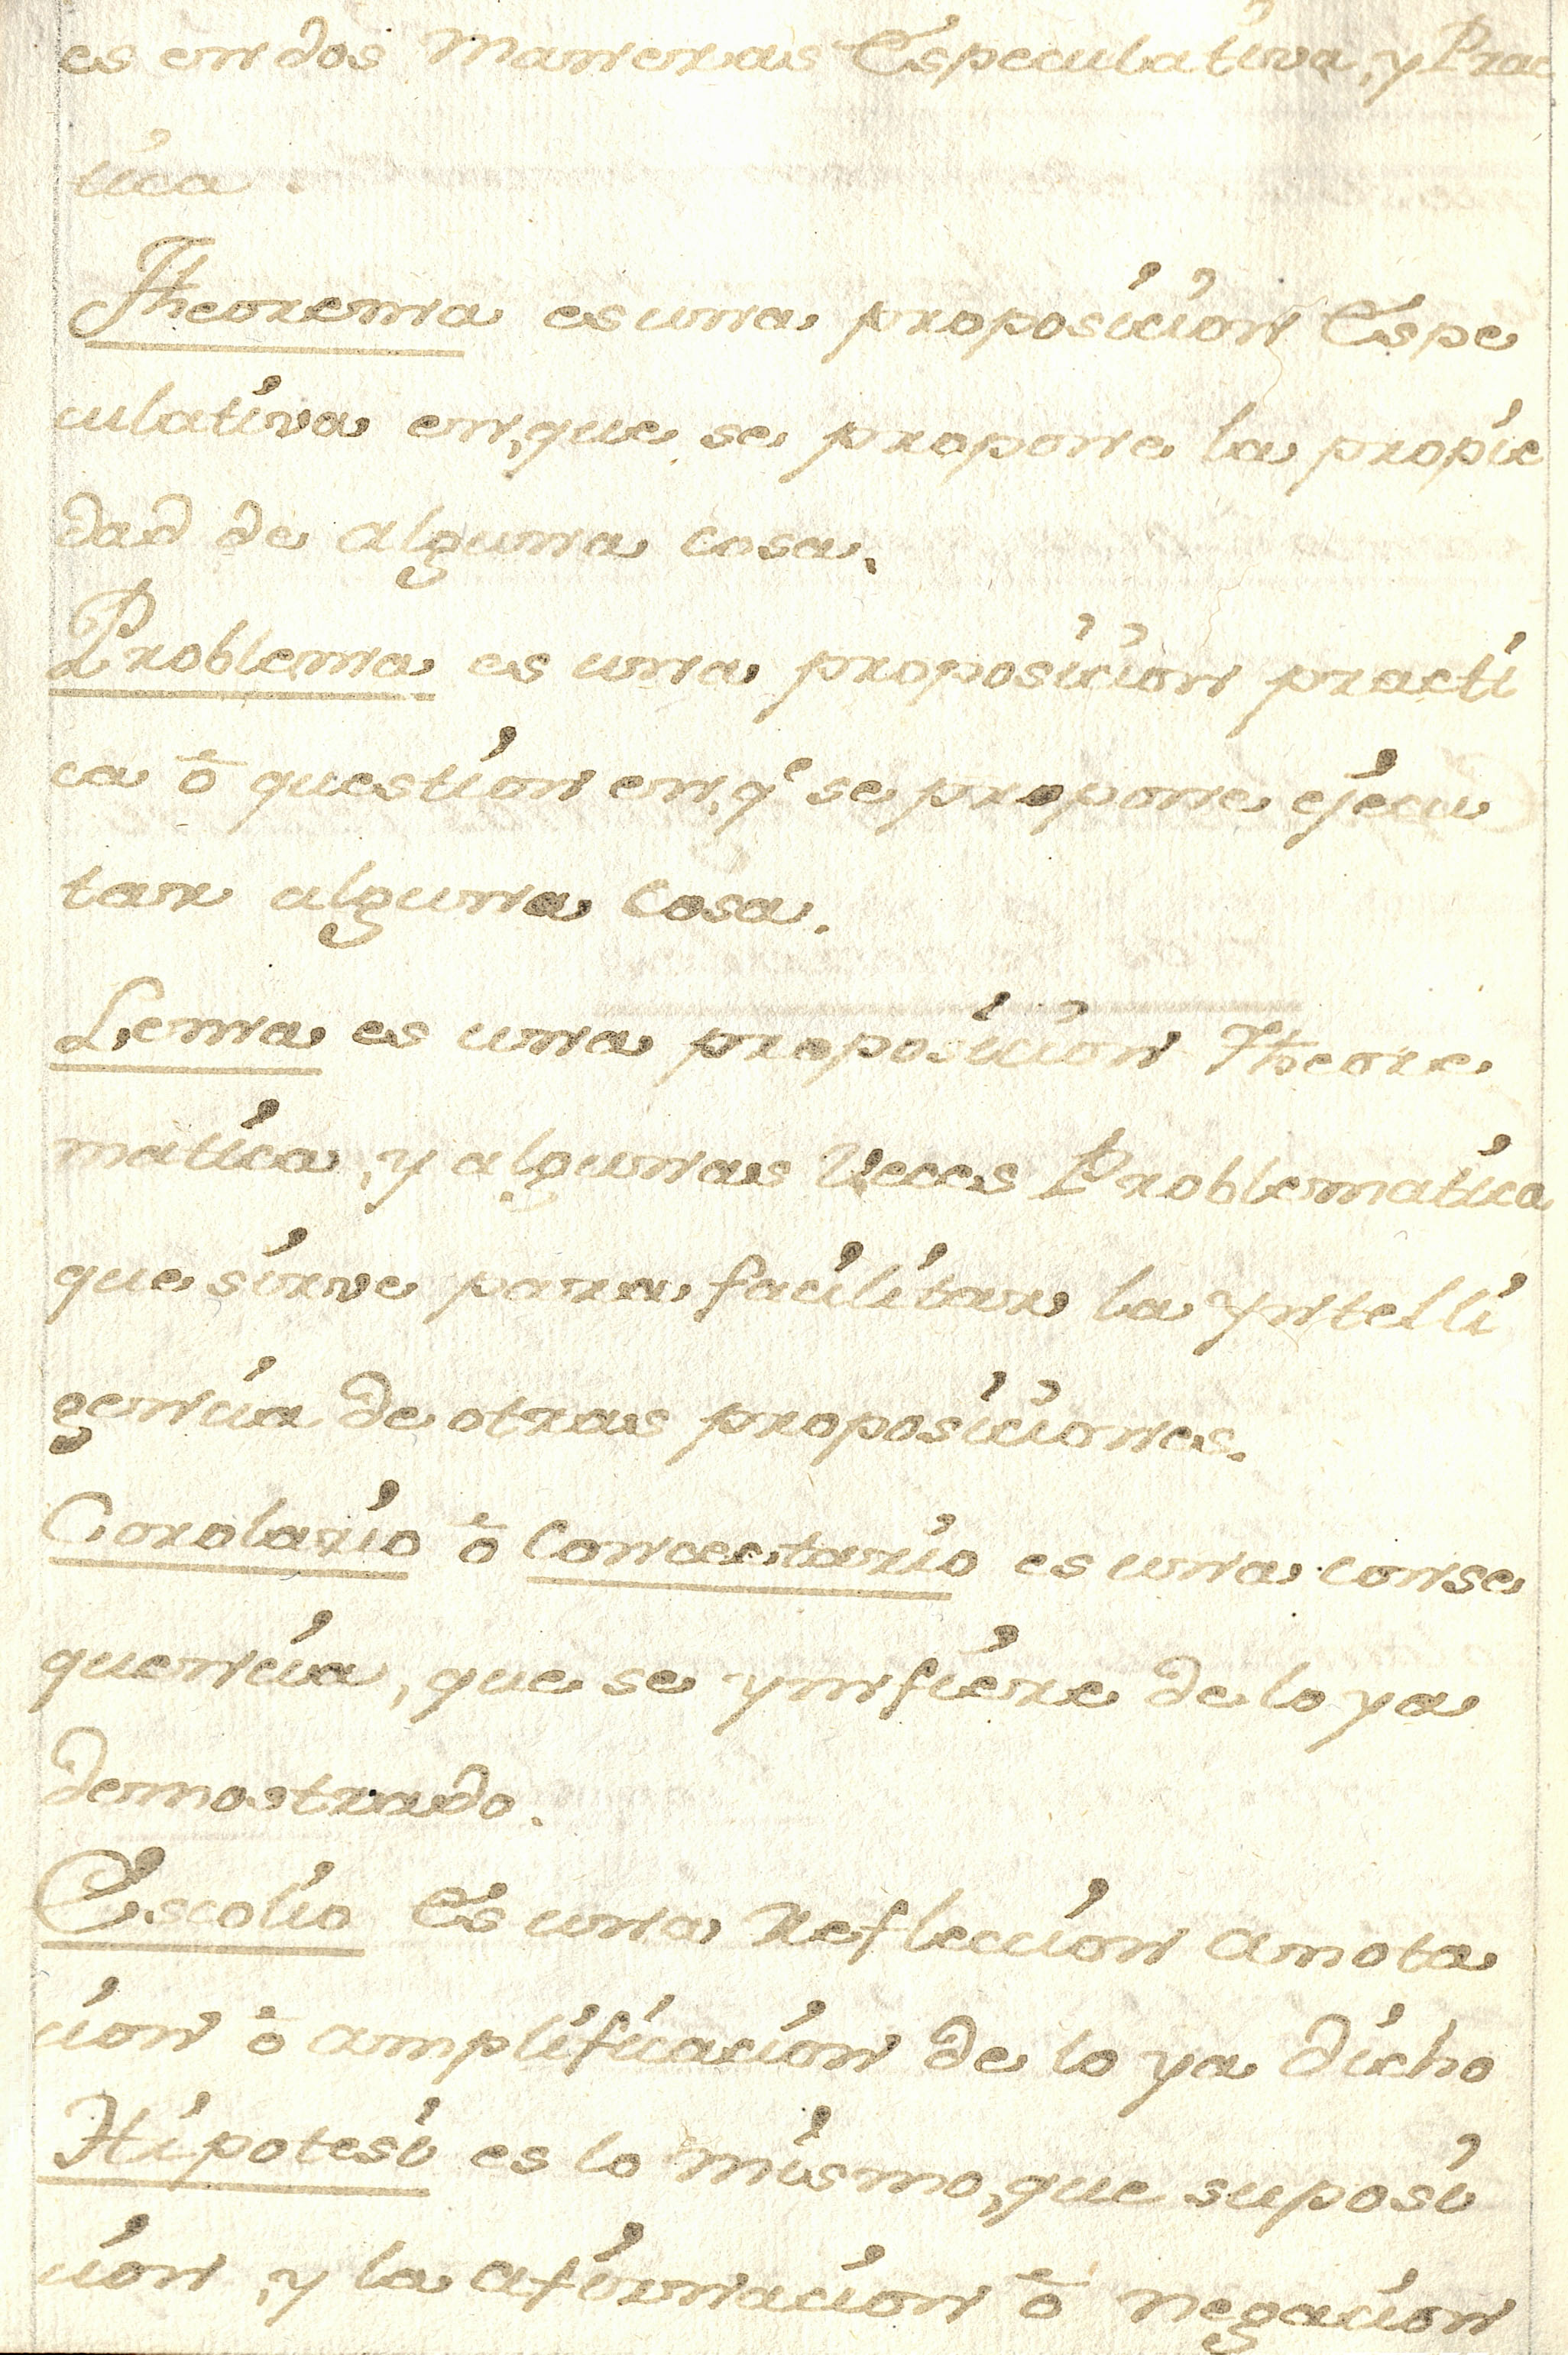 es en dos Maneras Especulativa, y Prac
tica.
Theorema es una proposicion Espe
culativa en, que se propone la propie
dad de alguna cosa.
Problema es una proposicion practi
ca ō question en, qᵉ se propone ejecu
tar alguna Cosa.
Lema es una proposicion Theore
matica, y algunas Veces Problematica
que sirve para facilitar la yntelli
gencia de otras proposiciones.
Corolario ō Concectario es una conse
quencia, que se ynfiere de lo ya
demostrado.
Escolio Es una Refleccion anota
cion ō amplificacion de lo ya dicho
Hipotesi es lo mismo, que suposi
cion, y la afirmacion ō negacion